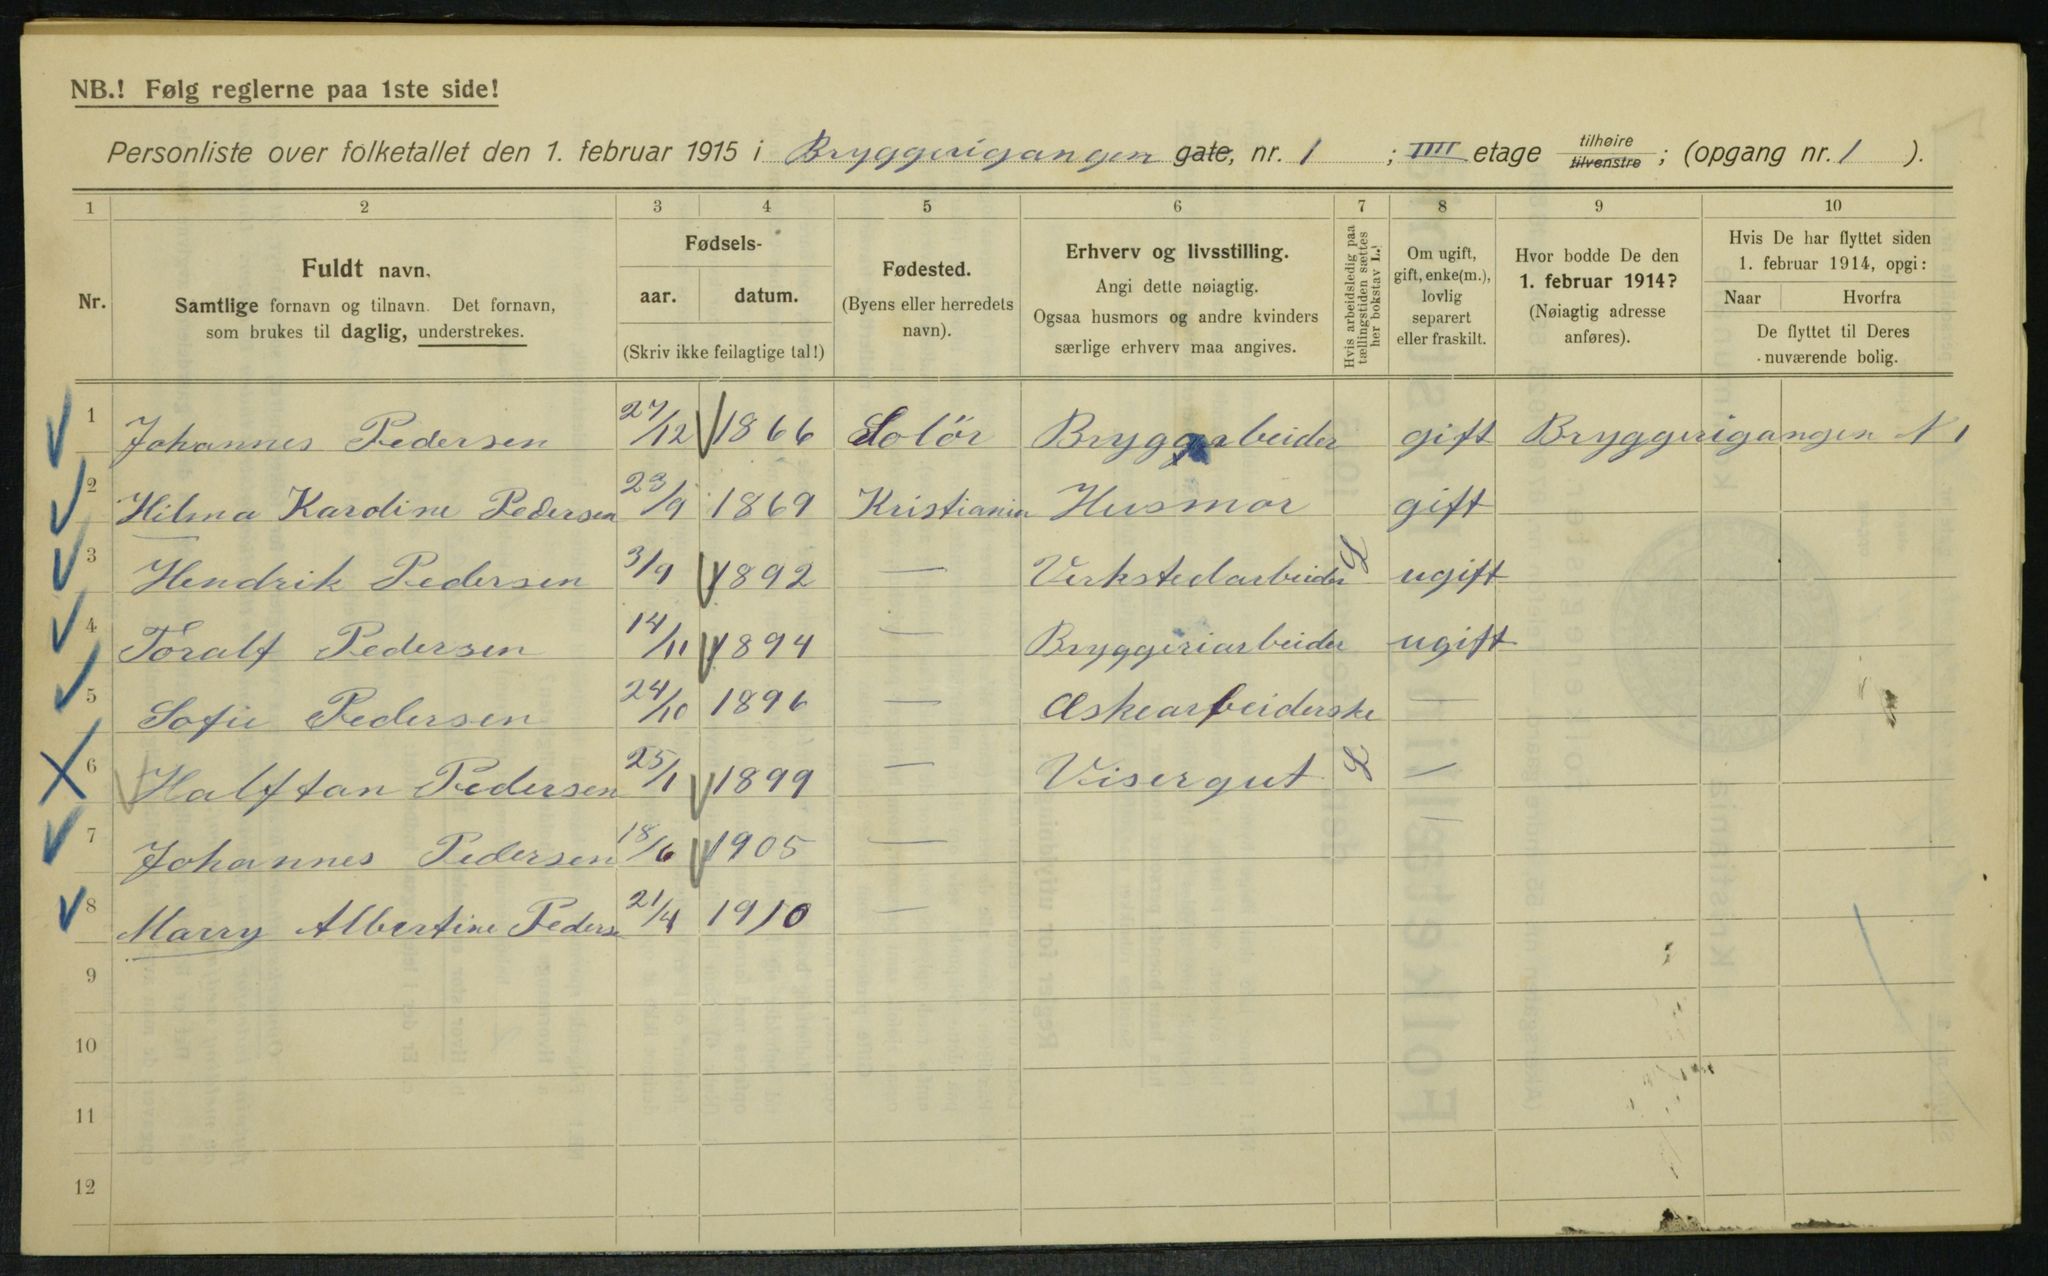 NB.! Følg reglerne paa 1ste side!
Personliste over folketallet den 1. februar 1915 i Bryggerigangen gate, nr. 1 ; IIII etage tilhøire tilvenstre ; (opgang nr. 1 ).
1 2 3 4 5 6 7 8 9 10
Nr.
Fuldt navn.
Samtlige fornavn og tilnavn. Det fornavn,
som brukes til daglig, understrekes.
Fødsels-
aar. datum.
(Skriv ikke feilagtige tal!)
Fødested.
(Byens eller herredets
navn).
Erhverv og livsstilling.
Angi dette nøiagtig.
Ogsaa husmors og andre kvinders
særlige erhverv maa angives.
Hvis arbeidsledig paa
tællingstiden sættes
her bokstav L.!
Om ugift,
gift, enke(m.),
lovlig
separert
eller fraskilt.
Hvor bodde De den
1. februar 1914?
(Nøiagtig adresse
anføres).
Hvis De har flyttet siden
1. februar 1914, opgi:
Naar Hvorfra
De flyttet til Deres
nuværende bolig.
1 Johannes Pedersen 27/12 1866 Solör Bryggarbeider gift Bryggerigangen N 1
2 Hilma Karoline Pedersen 23/9 1869 Kristiania Husmor gift
3 Hendrik Pedersen 3/9 1892 — Verkstedarbeider L ugift
4 Toralf Pedersen 14/11 1894 — Bryggeriarbeider ugift
5 Sofie Pedersen 24/10 1896 — Æskearbeiderske —
6 Halftan Pedersen 25/1 1899 — Visergut L —
7 Johannes Pedersen 18/6 1905 —
8 Marry Albertine Pederse 21/4 1910 —
9
10
11
12